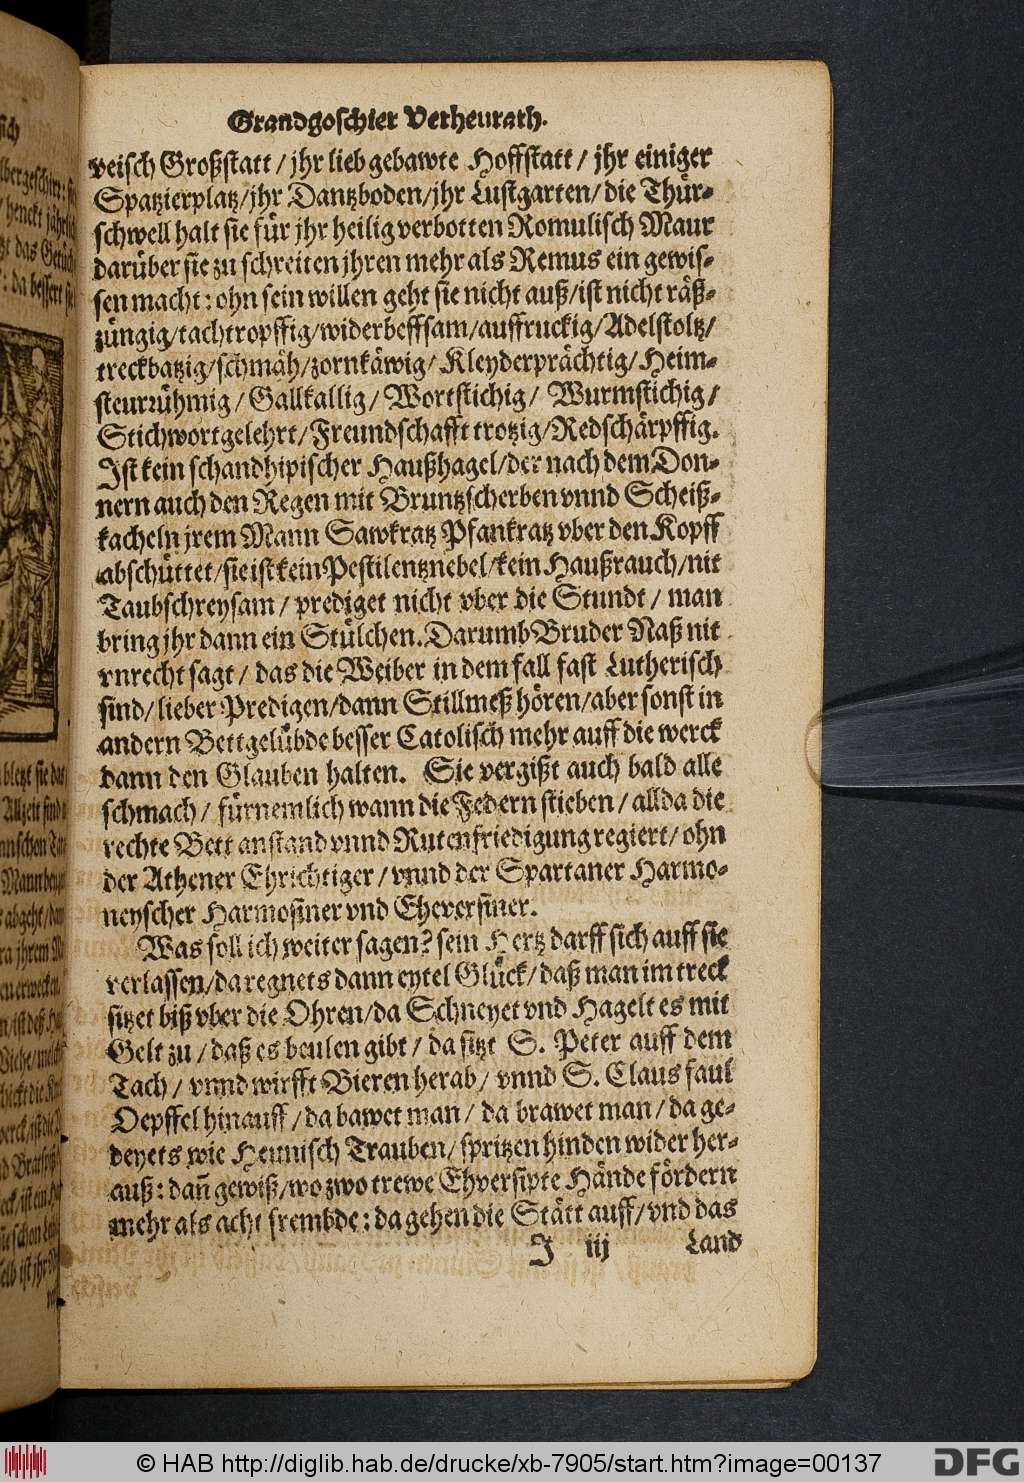 Grandgoschier Verheurath.
veisch Großstatt / jhr lieb gebawte Hoffstatt / jhr einiger
Spatzierplatz/jhr Dantzboden/jhr Lustgarten/ die Thür-
schwell halt sie für jhr heilig verbotten Romulisch Maur
darüber sie zu schreiten jhren mehr als Remus ein gewis-
sen macht : ohn sein willen geht sie nicht auß/ist nicht räß-
züngig/tachtropffig/widerbeffsam/auffruckig/Adelstoltz/
treckbatzig/schmäh/zornkäwig/ Kleyderprächtig/ Heim-
steurrühmig / Gallkallig/ Wortstichig/ Wurmstichig/
Stichwortgelehrt/Freundschafft trotzig/Redschärpffig.
Ist kein schandhipischer Haußhagel/der nach dem Don-
nern auch den Regen mit Bruntzscherben vnnd Scheiß-
kacheln jrem Mann Sawkratz Pfankratz vber den Kopff
abschüttet/sie ist kein Pestilentznebel/kein Haußrauch/nit
Taubschreysam / prediget nicht vber die Stundt / man
bring jhr dann ein Stülchen. Darumb Bruder Naß nit
vnrecht sagt / das die Weiber in dem fall fast Lutherisch
sind/ lieber Predigen/dann Stillmeß hören/aber sonst in
andern Bettgelübde besser Catolisch mehr auff die werck
dann den Glauben halten. Sie vergißt auch bald alle
schmach / fürnemlich wann die Federn stieben / allda die
rechte Bett anstand vnnd Rutenfriedigung regiert/ ohn
der Athener Ehrichtiger / vnnd der Spartaner Harmo-
neyscher Harmosiner vnd Eheversiner.
Was soll ich weiter sagen? sein Hertz darff sich auff sie
verlassen/da regnets dann eytel Glück/ daß man im treck
sitzet biß vber die Ohren/da Schneyet vnd Hagelt es mit
Gelt zu / daß es beulen gibt / da sitzt S. Peter auff dem
Tach / vnnd wirfft Bieren herab/ vnnd S. Claus faul
Oepffel hinauff / da bawet man / da brawet man / da ge-
deyets wie Heunisch Trauben/ spritzen hinden wider her-
auß : dañ gewiß/wo zwo trewe Ehversipte Hände fördern
mehr als acht frembde : da gehen die Stätt auff/ vnd das
J iij Land
© HAB http://diglib.hab.de/drucke/xb-7905/start.htm?image=00137
DFG